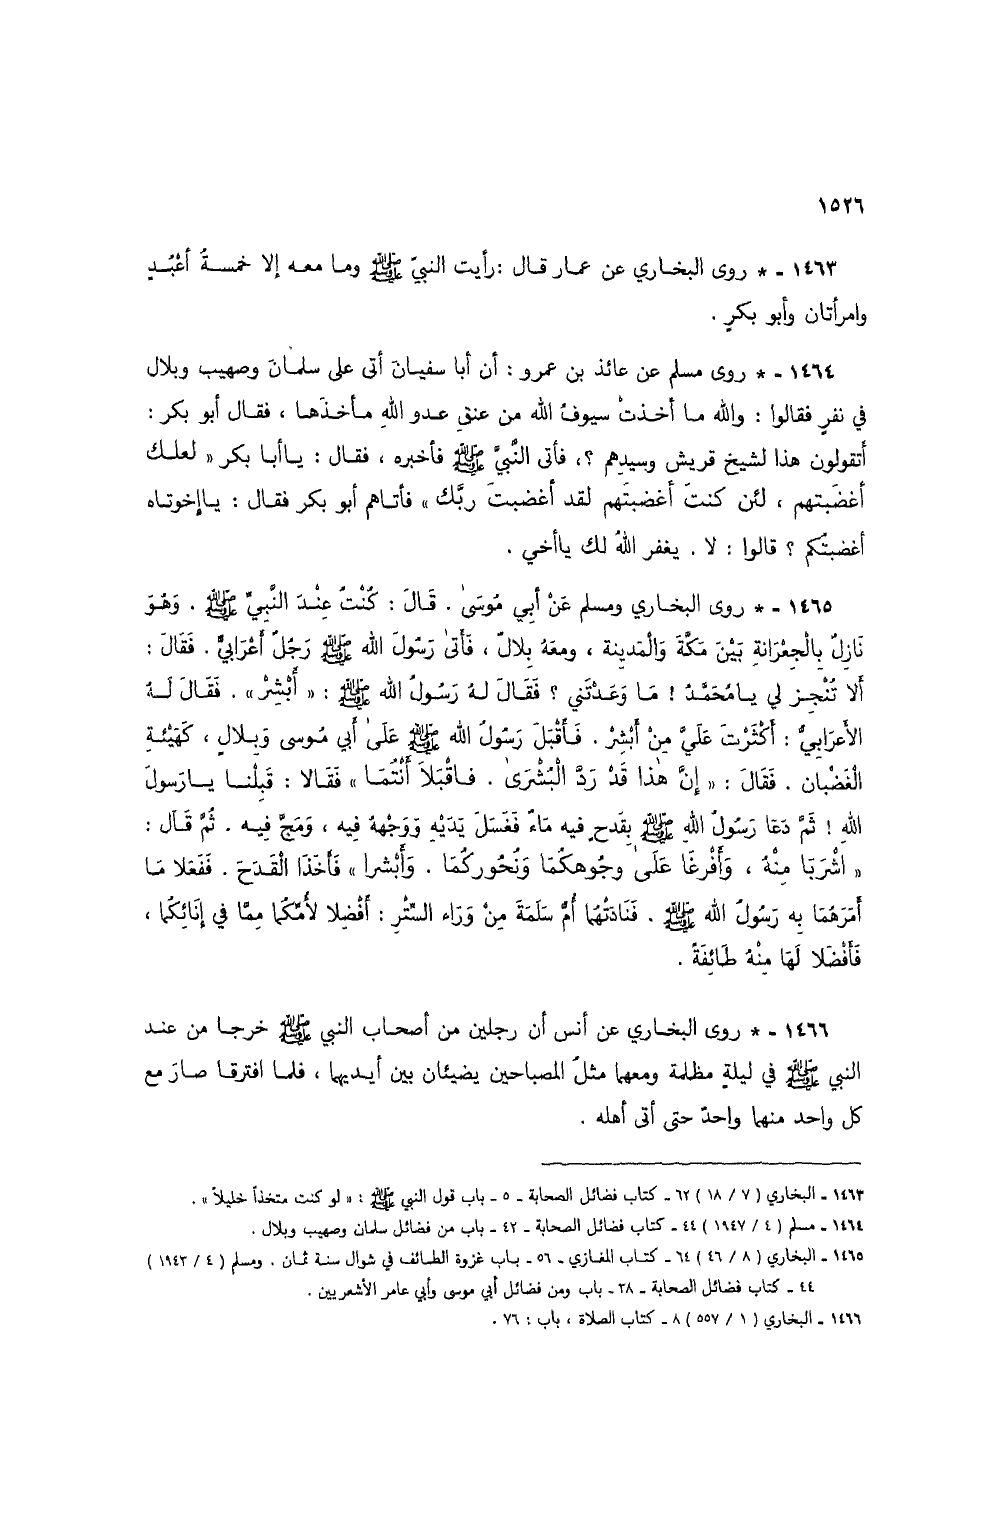 ١٥٢٦
١٤٦٣ ـ * روى البخاري عن عمار قال :رأيت النبيّ ﷺ وما معه إلا خمسةُ أعْبُدٍ
وامرأتان وأبو بكرٍ .
١٤٦٤ ـ * روى مسلم عن عائذ بن عمرو : أن أبا سفيانَ أتى على سلمانَ وصهيب وبلال
في نفرٍ فقالوا : والله ما أخذتْ سيوفُ الله من عنقِ عدو اللهِ مأخذَها ، فقال أبو بكر :
أتقولون هذا لشيخ قريش وسيدِهم ؟، فأتى النَّبيَّ ﷺ فأخبره ، فقال : ياأبا بكر « لعلك
أغضَبتهم ، لئن كنتَ أغضبتَهم لقد أغضبتَ ربَّك » فأتاهم أبو بكر فقال : ياإخوتاه
أغضبتُكم ؟ قالوا : لا . يغفر اللهُ لك ياأخي .
١٤٦٥ ـ * روى البخاري ومسلم عَنْ أبِي مُوسَىٰ . قَالَ : كُنْتُ عِنْدَ النَّبِيِّ ﷺ . وَهُوَ
نَازِلٌ بِالْجِعْرَانةِ بَيْنَ مَكَّةَ وَالْمَدِينة ، ومعَهُ بِلالٌ ، فَأَتىٰ رَسُولَ الله ﷺ رَجُلٌ أَعْرَابيٌّ . فَقَالَ :
ألَا تُنْجِز لي يامُحَمَّدُ ! مَا وَعَدْتَني ؟ فَقَالَ لهُ رَسُولُ الله ﷺ : « أَبْشِرْ» . فَقَالَ لَهُ
الأعرَابِيُّ : أكْثَرْتَ عَلَيَّ مِنْ أَبْشِرْ . فَأَقْبَلَ رَسُولُ الله ﷺ عَلَىٰ أَبي مُوسى وَبِلالٍ ، كَهَيْئةِ
الْغَضْبانِ . فَقَالَ : « إنَّ هٰذا قَدْ رَدَّ الْبُشْرَىٰ . فاقْبَلاَ أَنْتُمَا » فَقَالا : قَبِلْنا يارَسولَ
الله ! ثُمَّ دَعَا رَسُولُ اللهِ ﷺ بِقَدحٍ فيه مَاءٌ فَغَسَلَ يَدَيْهِ وَوَجْهَهُ فيه ، وَمَجَّ فيه . ثُمَّ قَالَ :
« اشْرَبَا مِنْهُ ، وَأَفْرِغَا عَلَىٰ وجُوهِكُمَا وَنُحُورِكُمَا . وَأَبْشرا » فَأَخَذَا الْقَدَحَ . فَفَعَلا مَا
أَمَرَهُمَا به رَسُولُ الله ﷺ . فَنَادَتْهُما أُمُّ سَلَمَةَ مِنْ وَرَاء السِّتْرِ : أَفْضِلا لأمِّكُما مِمَّا في إنَائِكُما ،
فَأَفْضَلا لَهَا مِنْهُ طَائِفَةً .
١٤٦٦ ـ * روى البخاري عن أنس أن رجلين من أصحاب النبي ﷺ خرجا من عند
النبي ﷺ في ليلةٍ مظلمة ومعهما مثلُ المصباحين يضيئان بين أيديهما ، فلما افترقا صارَ مع
كل واحد منهما واحدٌ حتى أتى أهله .
١٤٦٣ ـ البخاري ( ٧ / ١٨ ) ٦٢ ـ كتاب فضائل الصحابة ـ ٥ ـ باب قول النبي ﷺ : « لو كنت متخذاً خليلاً » .
١٤٦٤ ـ مسلم ( ٤ / ١٩٤٧ ) ٤٤ ـ كتاب فضائل الصحابة ـ ٤٢ ـ باب من فضائل سلمان وصهيب وبلال .
١٤٦٥ ـ البخاري ( ٨ / ٤٦ ) ٦٤ ـ كتاب المغازي ـ ٥٦ ـ باب غزوة الطائف في شوال سنة ثمان . ومسلم ( ٤ / ١٩٤٣ )
٤٤ ـ كتاب فضائل الصحابة ـ ٣٨ ـ باب ومن فضائل أبي موسى وأبي عامر الأشعريين .
١٤٦٦ ـ البخاري ( ١ / ٥٥٧ ) ٨ ـ كتاب الصلاة ، باب : ٧٦ .